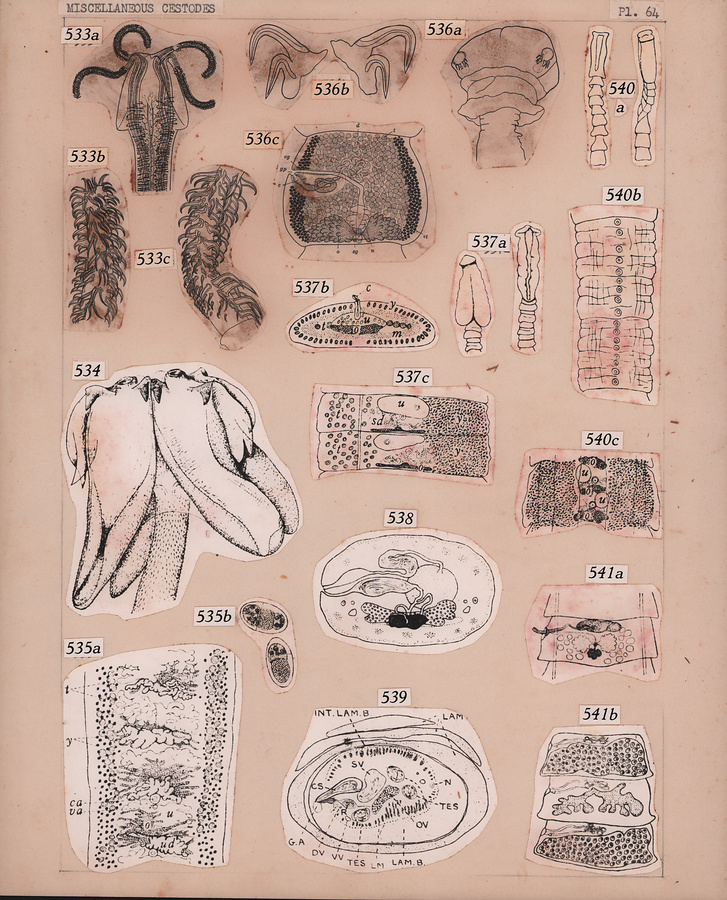 MISCELLANEOUS CESTODES
Pl. 64
533a
536a
536b
540
a
536c
533b
540b
537a
533c
537b
c
y
u
t
o
m
534
537c
u
t
sd
y
y
o
540c
o
u
u
538
541a
535b
535a
t
y
ca
va
u
o
ud
539
INT. LAM. B
LAM
SV
CS
N
O
TES
R
OV
G.A
DV
VV
TES
LM
LAM. B.
541b